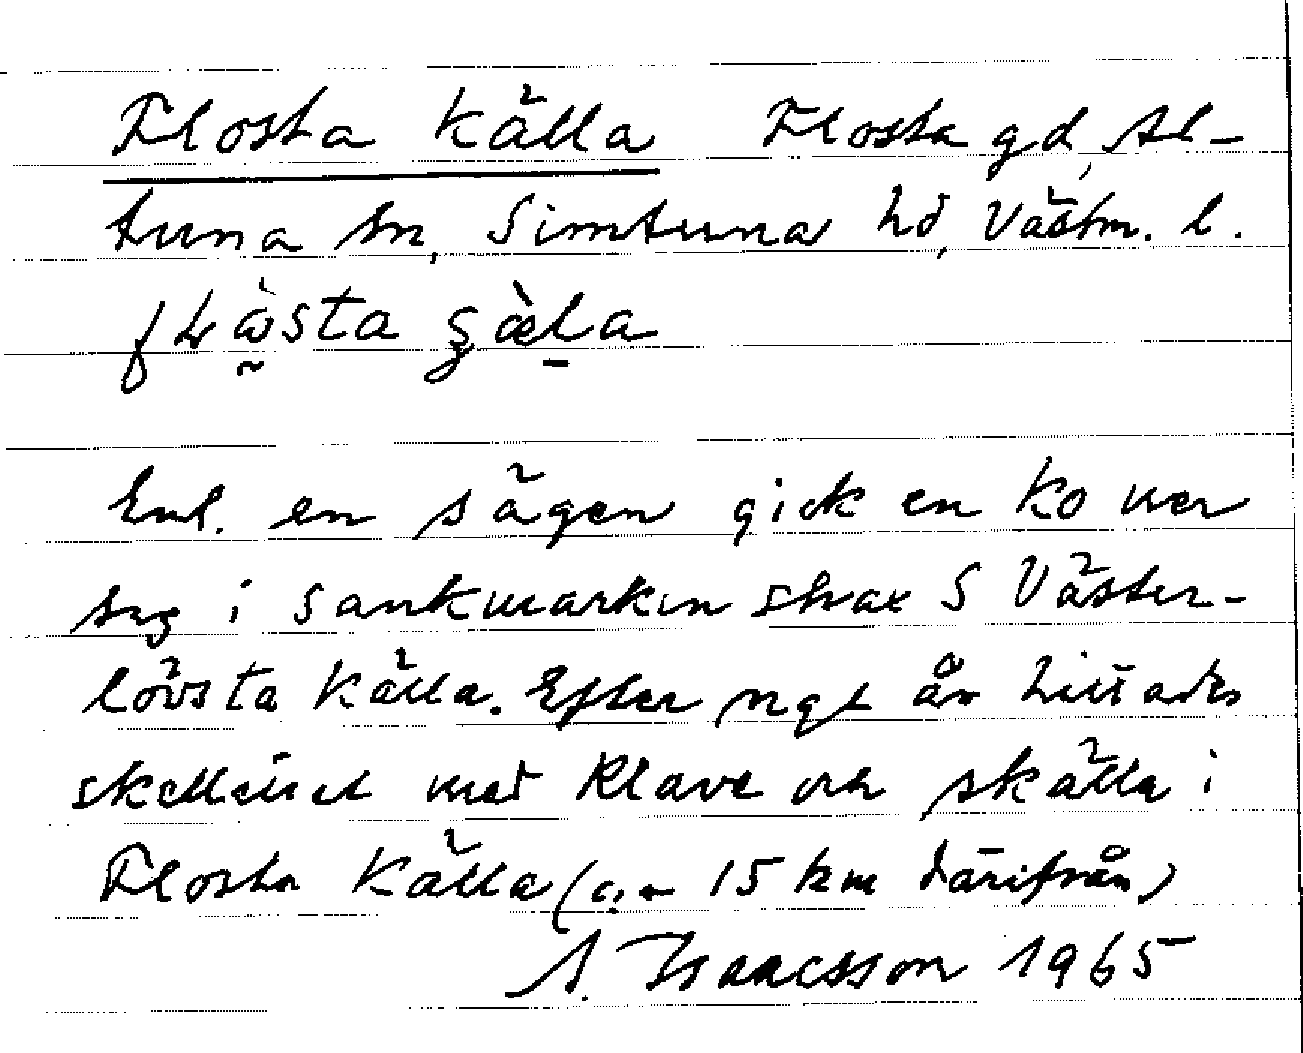 Flosta källa Flosta gd, Al-
tuna sn, Simtuna hd, Västm. l.
Enl. en sägen gick en ko ner
sig i sankmarken strax S Väster-
lövsta källa. Efter ngt år hittades
skelettet med klave och skälla i
Flosta källa (ca 15 km därifrån)
A. Isaacsson 1965